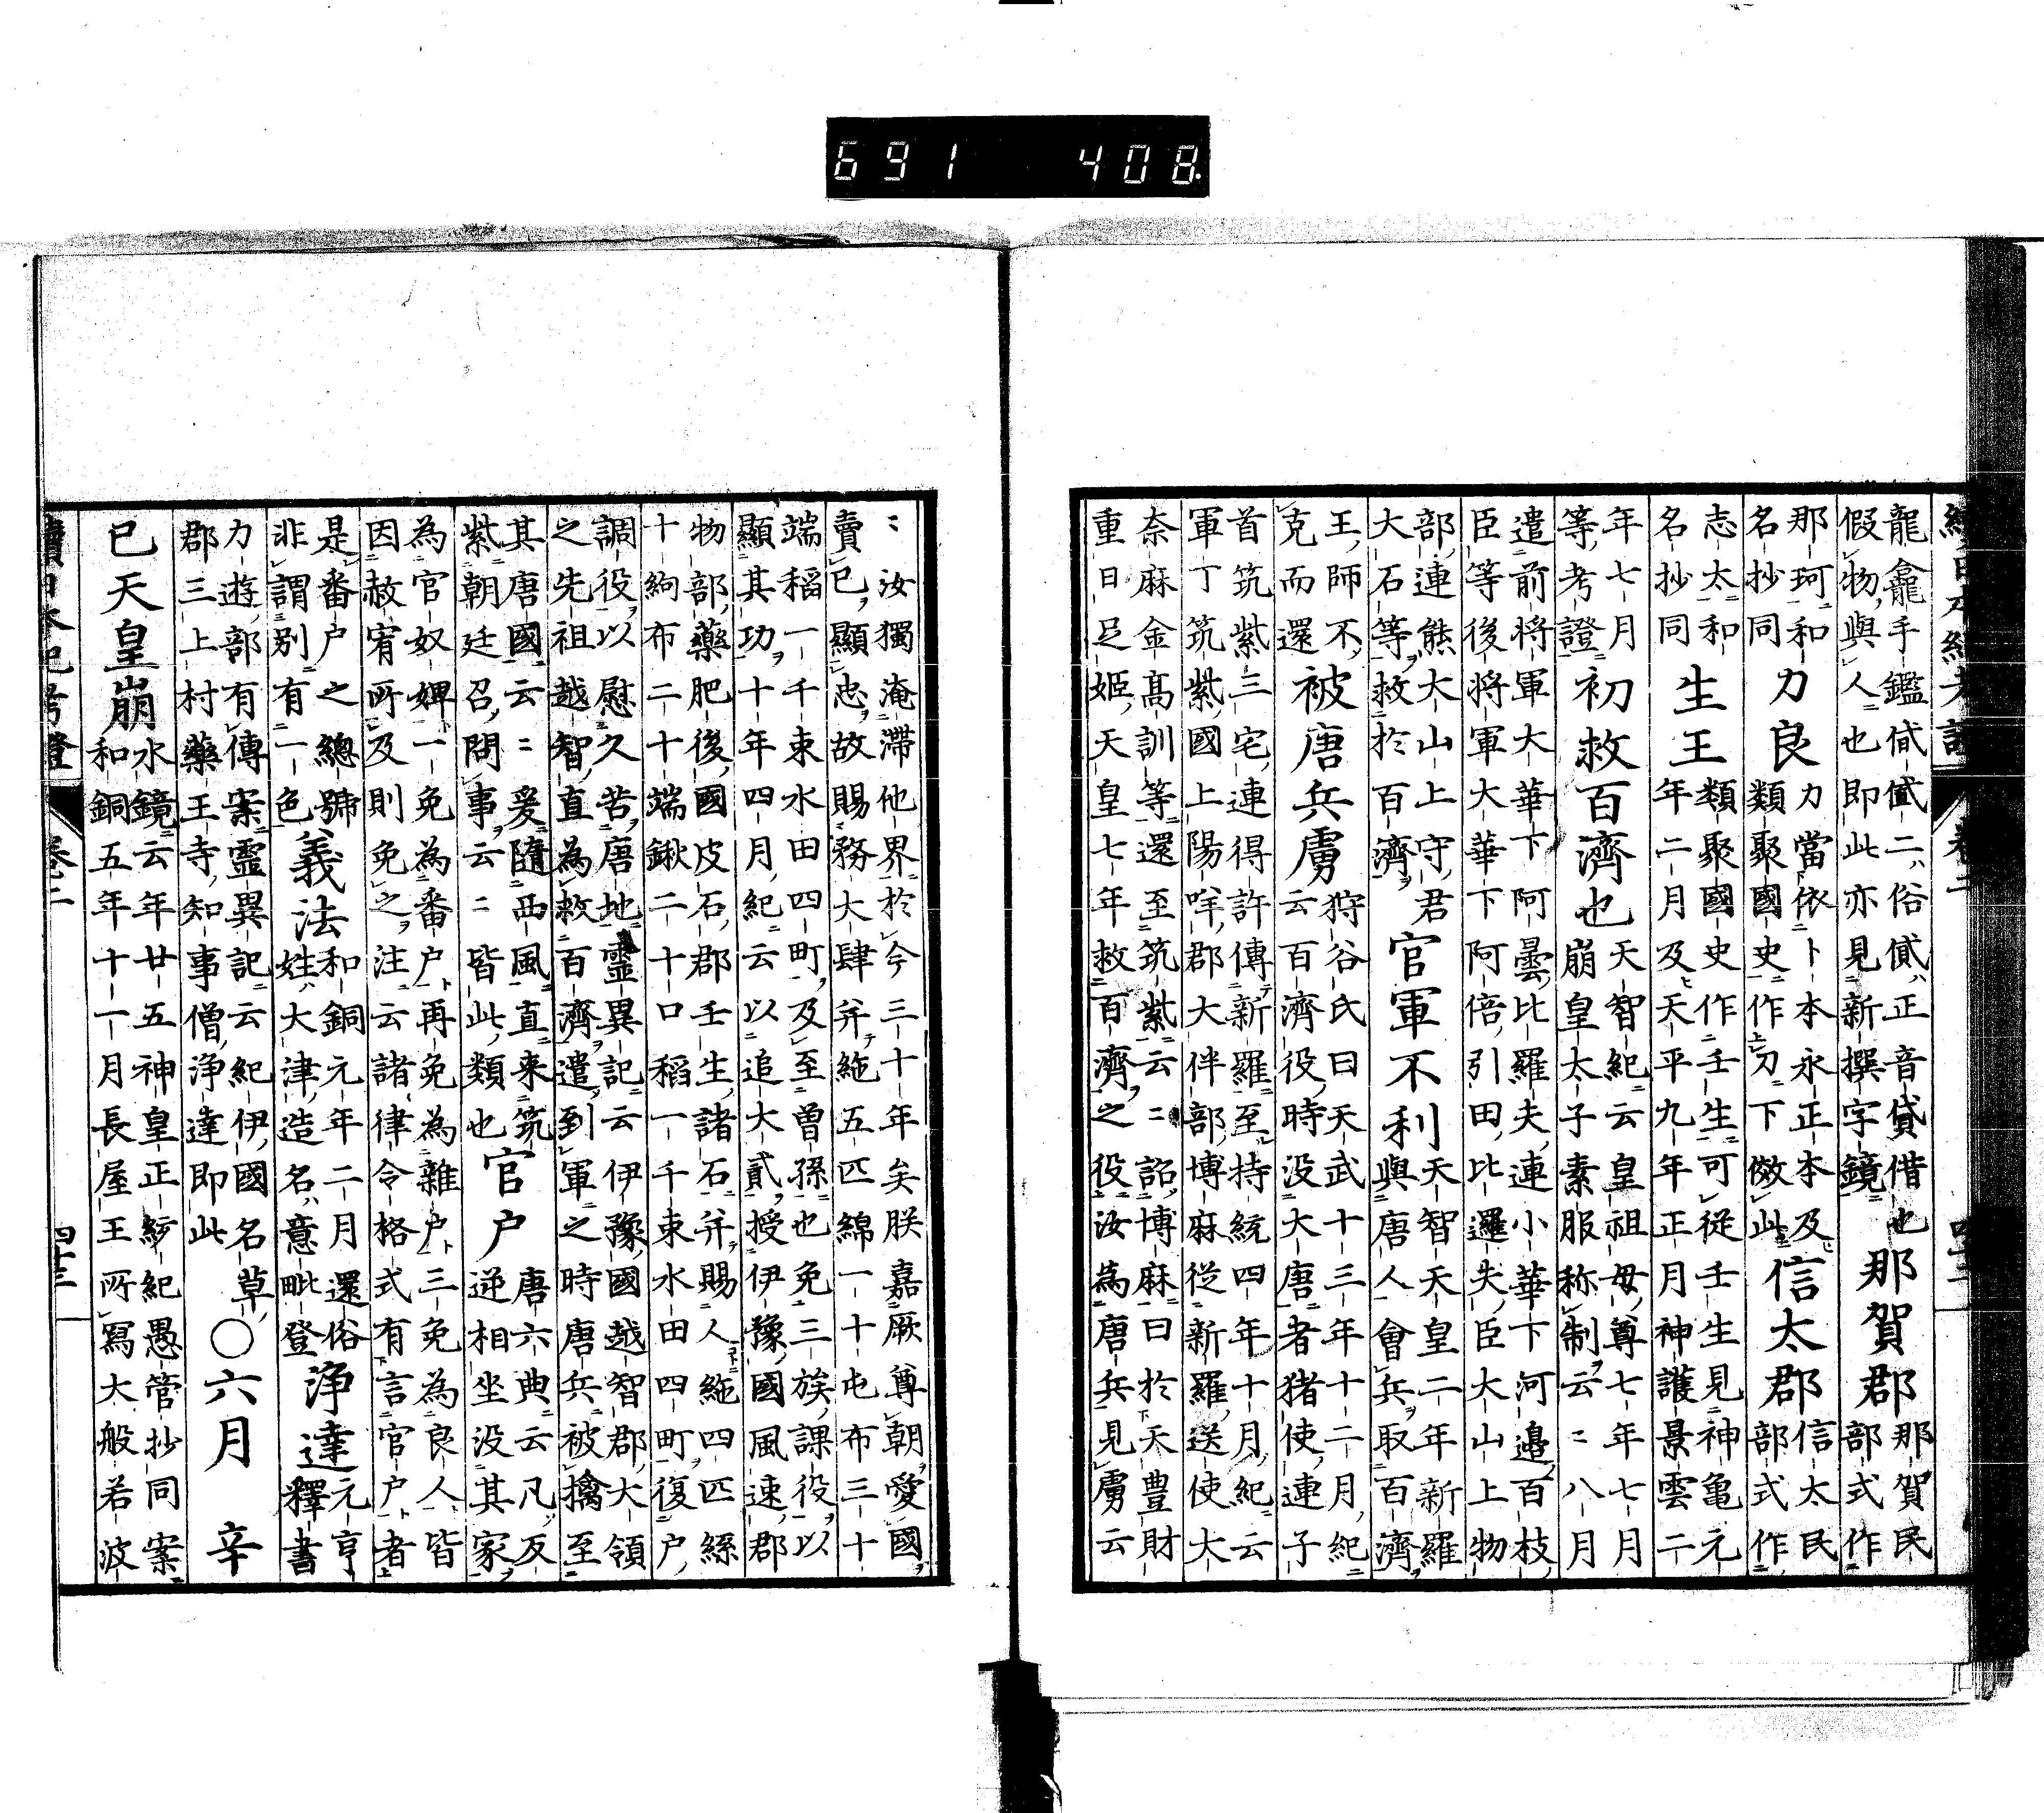 691 408
龍龕手鑑貸貳二俗貣正音貸借也
假物與人也即此亦見新撰字鏡
那賀郡
那賀民
部式作
那珂和
名抄同
力良
力當依卜本永正本及
類聚國史作刀下傚此
信太郡
信太民
部式作
志太和
名抄同
生王
類聚國史作壬生可從壬生見神亀元
年二月及天平九年正月神護景雲二
年七月
等考證
初救百濟也
天智紀云皇祖母尊七年七月
崩皇太子素服称制云〻八月
遣前将軍大華下阿曇比羅夫連小華下河邉百枝
臣等後将軍大華下阿倍引田比邏夫臣大山上物
部連熊大山上守君
大石等救於百濟
官軍不利
天智天皇二年新羅
與唐人會兵取百濟
王師不
克而還
被唐兵虜
狩谷氏曰天武十三年十二月紀
云百濟役時没大唐者猪使連子
首筑紫三宅連得許傳新羅至持統四年十月紀云
軍丁筑紫國上陽咩郡大伴部博麻從新羅送使大
奈麻金髙訓等還至筑紫云〻詔博麻曰於天豊財
重日足姫天皇七年救百濟之役汝為唐兵見虜云
〻汝獨淹滯他界於今三十年矣朕嘉厥尊朝愛國
賣已顯忠故賜務大肆并絁五匹綿一十屯布三十
端稻一千束水田四町及至曽孫也免三族課役以
顯其功十年四月紀云以追大貳授伊豫國風速郡
物部藥肥後國皮石郡壬生諸石并賜人絁四匹絲
十絇布二十端鍬二十口稻一千束水田四町復户
調役以慰久苦唐地靈異記云伊豫國越智郡大領
之先祖越智直為救百濟遣到軍之時唐兵被擒至
其唐國云〻爰隨西風直来筑
紫朝廷召問事云〻皆此類也
官户
唐六典云凡反
逆相坐没其家
為官奴婢一免為番户再免為雜户三免為良人皆
因赦宥所及則免之注云諸律令格式有言官户者
是番户之總號
非謂别有一色
義法
和銅元年二月還俗
姓大津造名意毗登
浄達
元亨
釋書
力遊部有傳案靈異記云紀伊國名草
郡三上村藥王寺知事僧浄達即此
○六月 辛
已天皇崩
水鏡云年廿五神皇正綂紀愚管抄同案
和銅五年十一月長屋王所寫大般若波
續日本紀考證 卷二 四十三